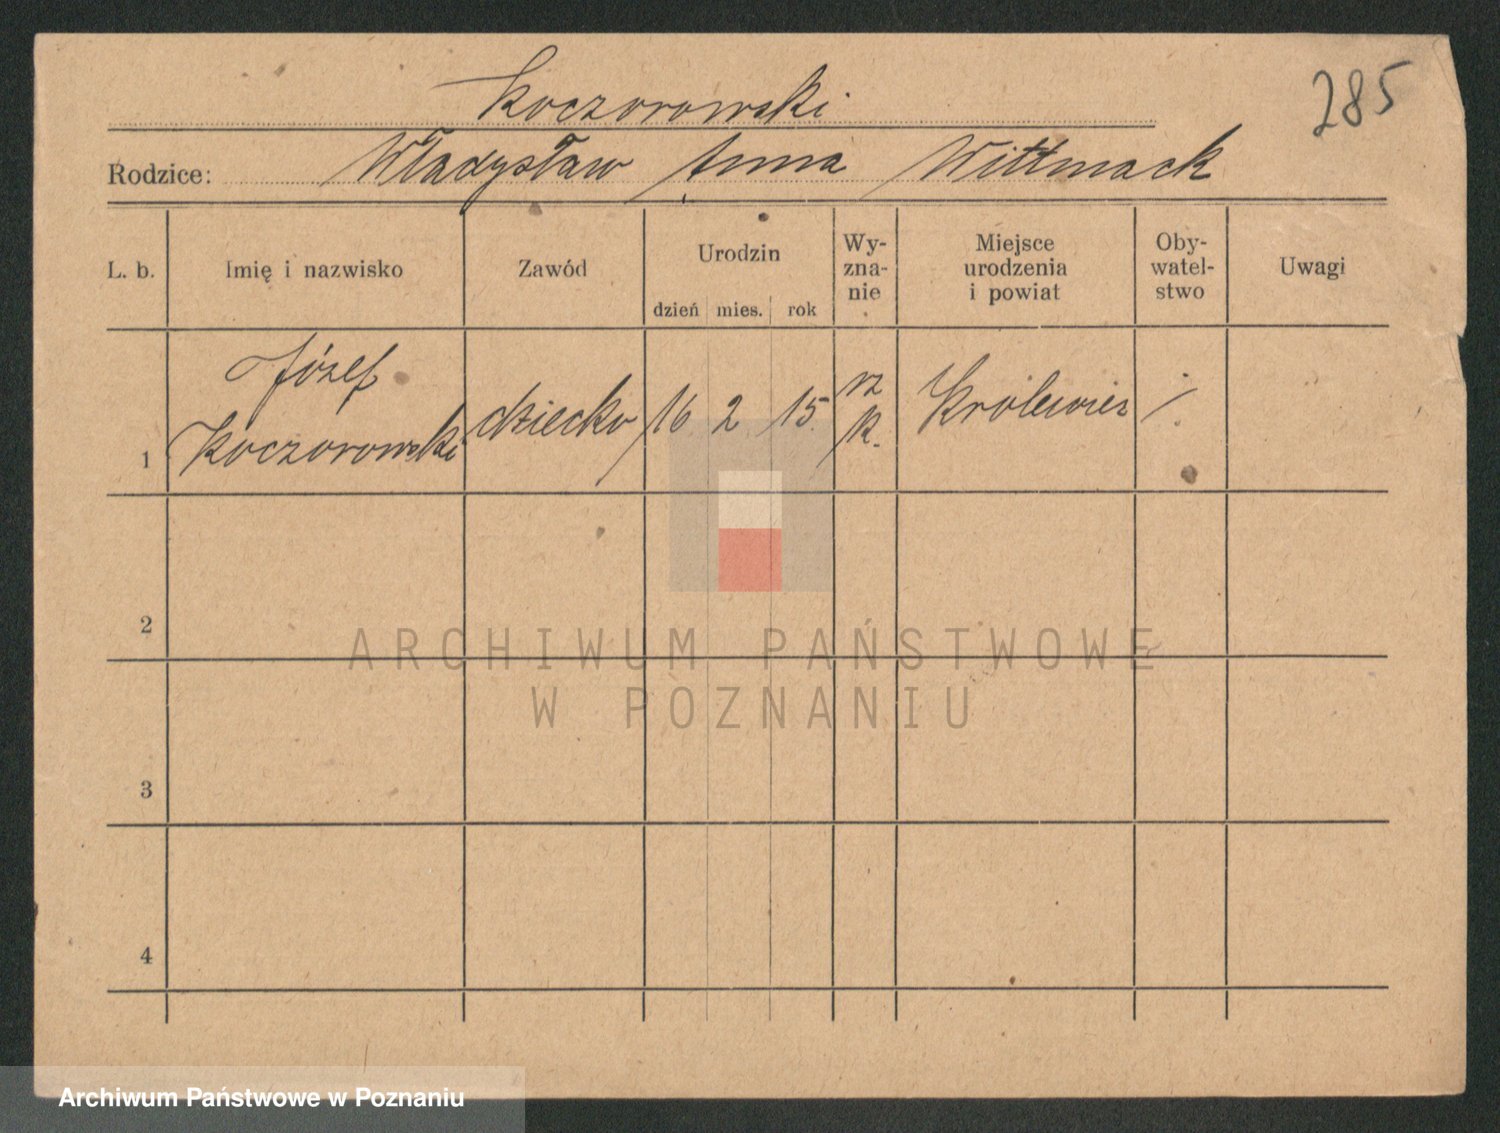 285
Koczorowski
Rodzice: Władysław Anna Wittmack
L. b.
Imię i nazwisko
Zawód
Urodzin
dzień mies. rok
Wy-
zna-
nie
Miejsce
urodzenia
i powiat
Oby-
watel-
stwo
Uwagi
1
Józef
Koczorowski
dziecko
16 2 15.
rz
k.
Królewiec
2
3
4
ARCHIWUM PAŃSTWOWE
W POZNANIU
Archiwum Państwowe w Poznaniu